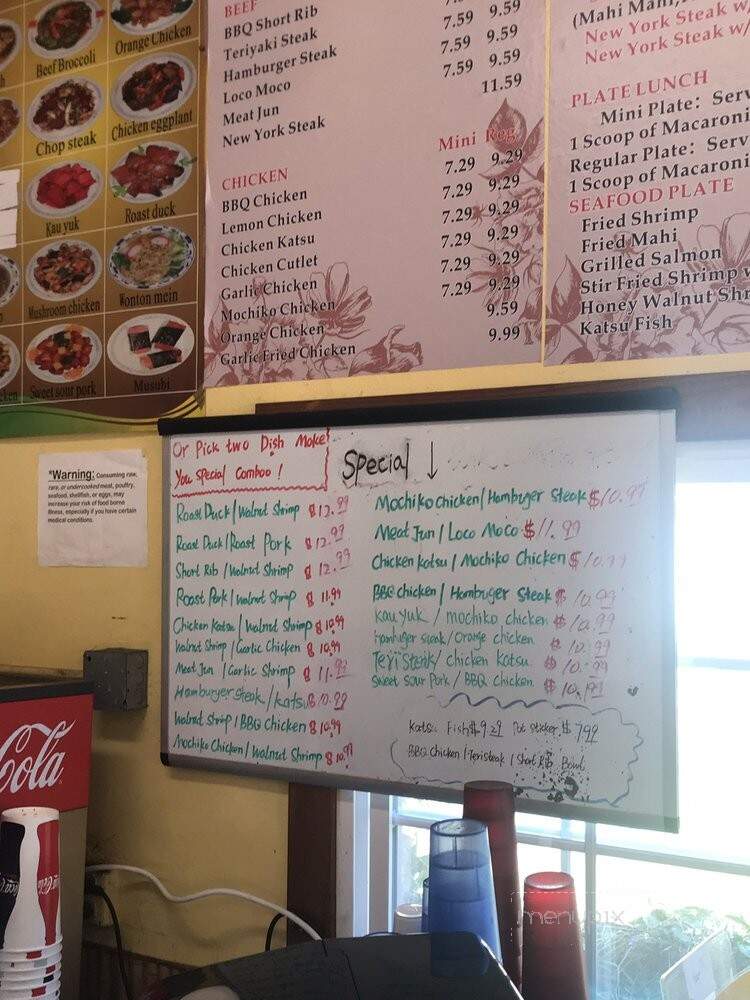 Beef Broccoli
Orange Chicken
Chop steak
Chicken eggplant
Kau yuk
Roast duck
Mushroom chicken
Wonton mein
Sweet sour pork
Musubi
BEEF
BBQ Short Rib
Teriyaki Steak 7.59 9.59
Hamburger Steak 7.59 9.59
Loco Moco 7.59 9.59
Meat Jun
New York Steak 11.59
Mini Reg.
CHICKEN 7.29 9.29
BBQ Chicken 7.29 9.29
Lemon Chicken 7.29 9.29
Chicken Katsu 7.29 9.29
Chicken Cutlet 7.29 9.29
Garlic Chicken 7.29 9.29
Mochiko Chicken 9.59
Orange Chicken 9.99
Garlic Fried Chicken
(Mahi Mahi,
New York Steak w/
New York Steak w/
PLATE LUNCH
Mini Plate: Serv
1 Scoop of Macaroni
Regular Plate: Serv
1 Scoop of Macaroni
SEAFOOD PLATE
Fried Shrimp
Fried Mahi
Grilled Salmon
Stir Fried Shrimp
Honey Walnut Shr
Katsu Fish
*Warning: Consuming raw,
rare, or undercooked meat, poultry,
seafood, shellfish, or eggs, may
increase your risk of food borne
illness, especially if you have certain
medical conditions.
Or Pick two Dish Make
You Special Comboo!
Special ↓
Roast Duck/Walnut Shrimp $12.99
Roast Duck/Roast Pork $12.99
Short Rib/Walnut Shrimp $12.99
Roast Pork/Walnut Shrimp $11.99
Chicken Katsu/Walnut Shrimp $10.99
Walnut Shrimp/Garlic Chicken $10.99
Meat Jun/Garlic Shrimp $11.99
Hamburger steak/katsu $10.99
Walnut Shrip/BBQ Chicken $10.99
Mochiko Chicken/Walnut Shrimp $10.99
Mochiko chicken/Hambuger Steak $10.99
Meat Jun/Loco Moco $11.99
Chicken katsu/Mochiko Chicken $10.99
BBQ chicken/Hambuger Steak $10.99
Kau yuk/mochiko chicken $10.99
Hambuger steak/Orange chicken $10.99
Teri steak/chicken katsu $10.99
Sweet sour Pork/BBQ Chicken $10.99
Katsu Fish $9.29 Pot sticker $7.99
BBQ Chicken/Teristeak/Short Rib Bowl
Cola
menupix